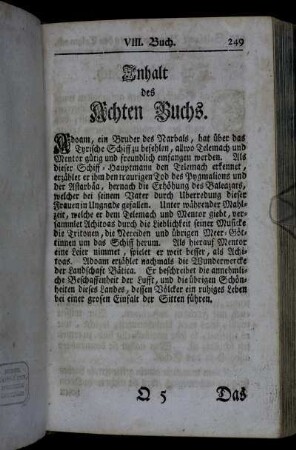 VIII. Buch. 249
Inhalt
des
Achten Buchs.
Adoam, ein Bruder des Narbals, hat über das
Tyrische Schiff zu befehlen, allwo Telemach und
Mentor gütig und freundlich empfangen werden. Als
dieser Schiff-Hauptmann den Telemach erkennet,
erzählet er ihm den traurigen Tod des Pygmalions und
der Astarbäa, hernach die Erhöhung des Baleazars,
welcher bei seinem Vatter durch Uberredung dieser
Frauen in Ungnade gefallen. Unter währender Mahl-
zeit, welche er dem Telemach und Mentor giebt, ver-
sammlet Achitoas durch die Lieblichkeit seiner Musicke
die Tritonen, die Nereiden und übrigen Meer-Göt-
tinnen um das Schiff herum. Als hierauf Mentor
eine Leier nimmet, spielet er weit besser, als Achi-
toas. Adoam erzählet nachmals die Wunderwercke
der Landschaft Bätica. Er beschreibet die annehmli-
che Beschaffenheit der Lufft, und die übrigen Schön-
heiten dieses Landes, dessen Völcker ein ruhiges Leben
bei einer grosen Einfalt der Sitten führen.
Q 5 Das